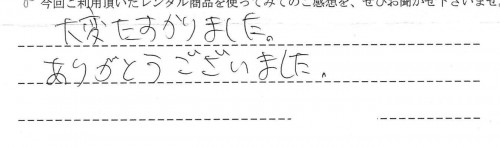 今回ご利用頂いたレンタル商品を使ってみてのご感想を、ぜひお聞かせ下さいませ
大変たすかりました。
ありがとうございました。